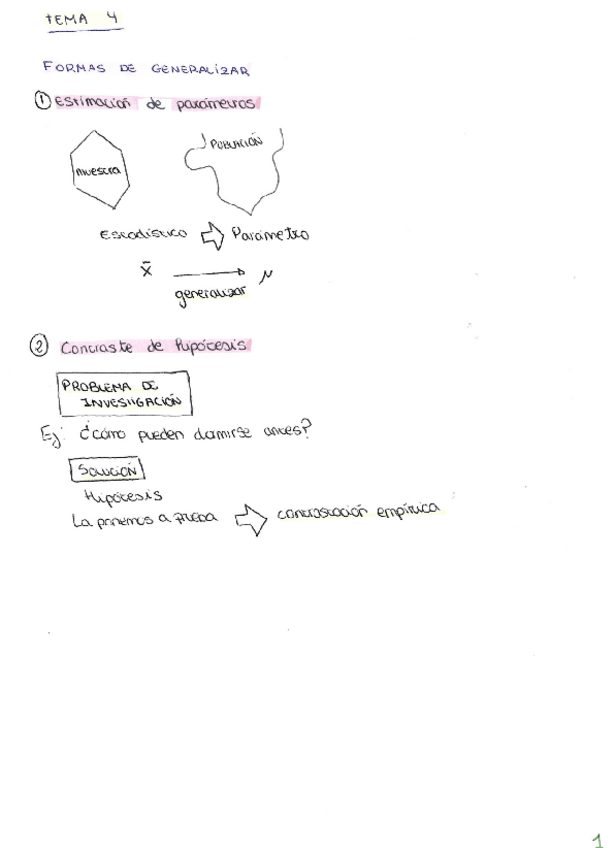 TEMA 4
FORMAS DE GENERALIZAR
① Estimación de parámetros
muestra
POBLACIÓN
Estadístico ⇨ Parámetro
x̄ → μ
generalizar
② Contraste de hipótesis
PROBLEMA DE
INVESTIGACIÓN
Ej: ¿cómo pueden dormirse antes?
SOLUCIÓN
Hipótesis
La ponemos a prueba ⇨ contrastación empírica
1